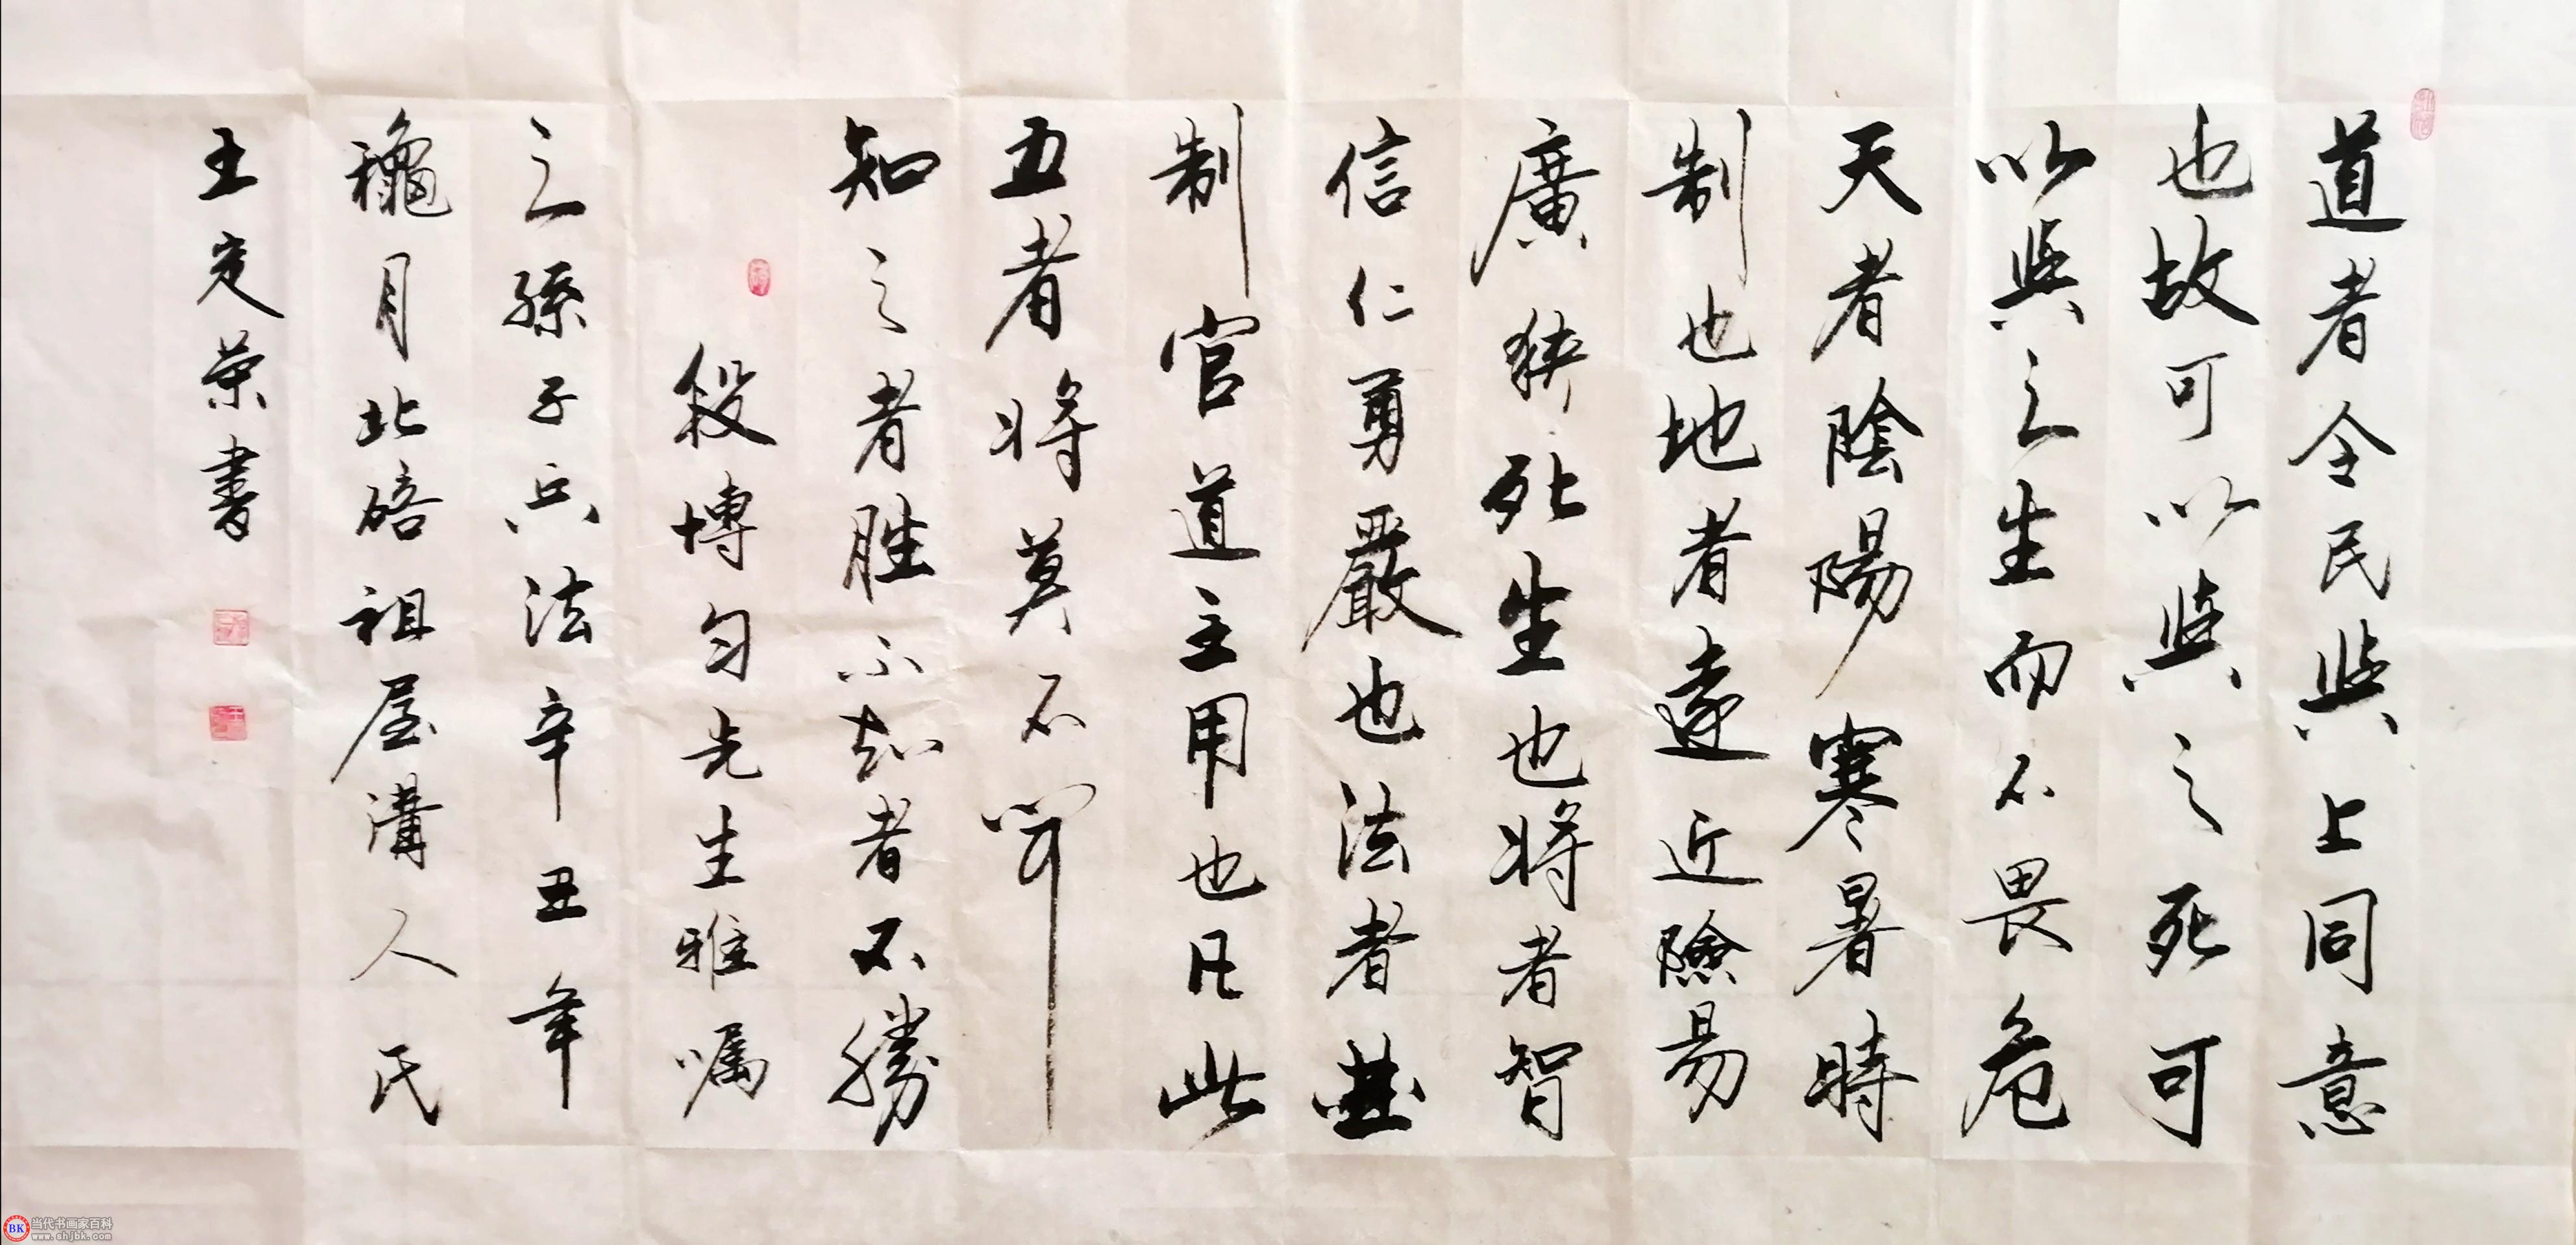 道者令民與上同意
也故可以與之死可
以與之生而不畏危
天者陰陽寒暑時
制也地者遠近險易
廣狹死生也將者智
信仁勇嚴也法者曲
制官道主用也凡此
五者將莫不聞
知之者胜不知者不勝
段博勻先生雅嘱
之孫子兵法辛丑年
龝月北碚祖屋溝人氏
王定荣書
BK 当代书画家百科
www.shjbk.com